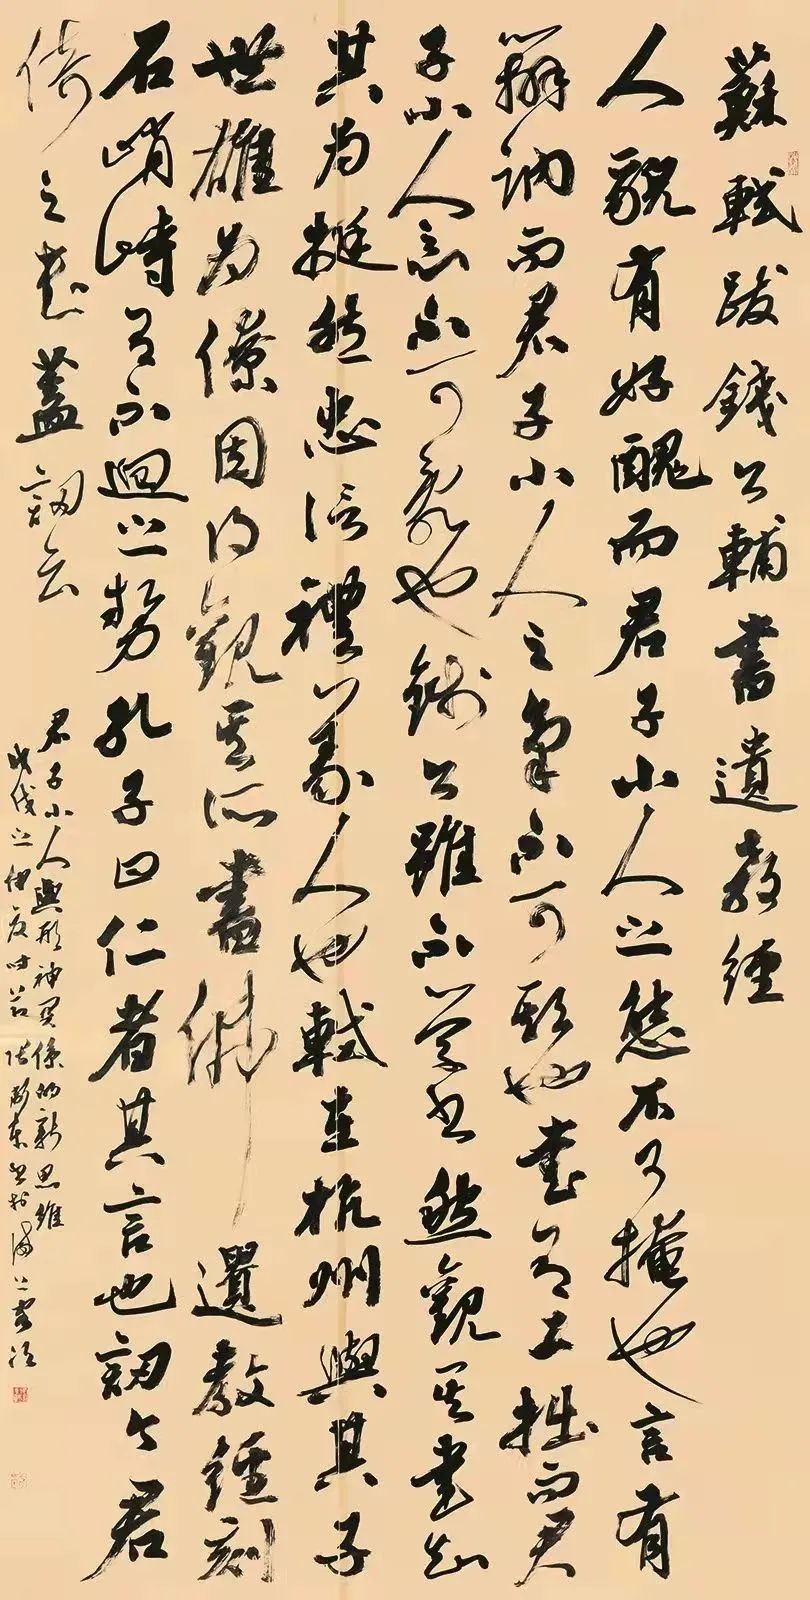 蘇軾跋錢公輔書遺教經
人貌有好醜而君子小人之態不可掩也言有
辯訥而君子小人之氣不可欺也書有工拙而君
子小人之心不可亂也錢公雖不學書然觀其書知
其為挺然忠信禮義人也軾在杭州與其子
世雄為僚因得觀其所書佛遺教經刻
石峭峙有不迴之勢孔子曰仁者其言也訒今君
倚之書蓋訒云
君子小人與形神関係的新思維
戊戌之仲夏時節